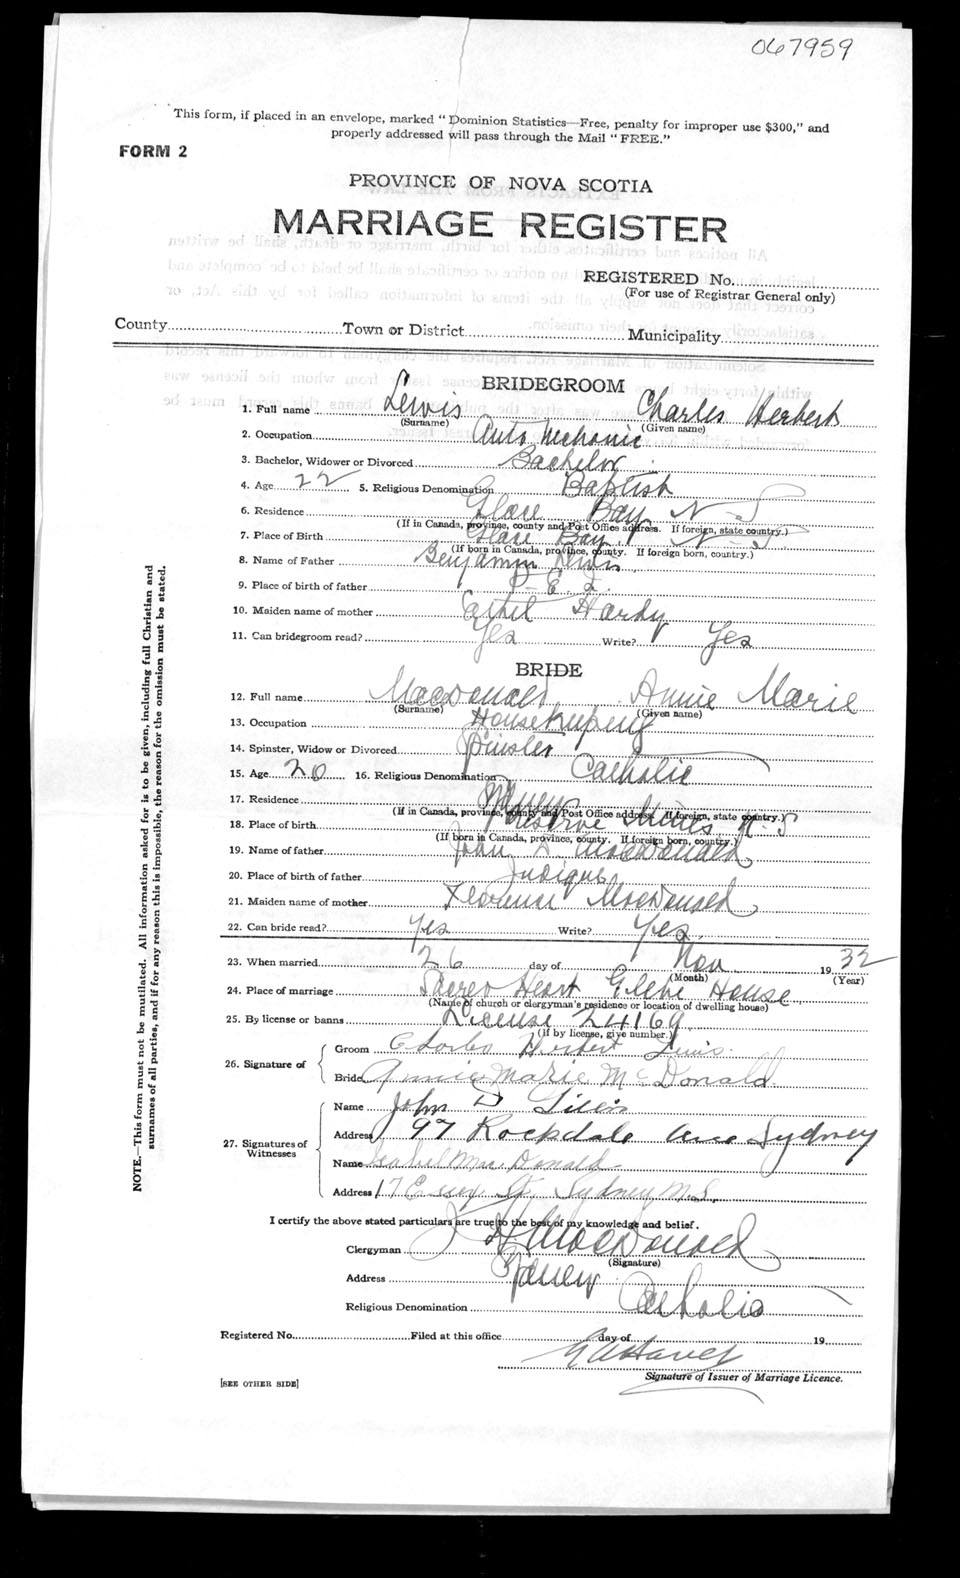 067959
This form, if placed in an envelope, marked "Dominion Statistics—Free, penalty for improper use $300," and
properly addressed will pass through the Mail "FREE."
FORM 2
PROVINCE OF NOVA SCOTIA
MARRIAGE REGISTER
REGISTERED No.
(For use of Registrar General only)
County Town or District Municipality
BRIDEGROOM
1. Full name Lewis Charles Herbert
(Surname) (Given name)
2. Occupation Auto Mechanic
3. Bachelor, Widower or Divorced Bachelor
4. Age 22 5. Religious Denomination Baptist
6. Residence Glace Bay N-S
(If in Canada, province, county and Post Office address. If foreign, state country.)
7. Place of Birth Glace Bay N-S
(If born in Canada, province, county. If foreign born, country.)
8. Name of Father Benjamin Lewis
9. Place of birth of father P-E-I.
10. Maiden name of mother Ethel Hardy
11. Can bridegroom read? Yes Write? Yes
BRIDE
12. Full name MacDonald Annie Marie
(Surname) (Given name)
13. Occupation Housekeeping
14. Spinster, Widow or Divorced Spinster
15. Age 20 16. Religious Denomination Catholic
17. Residence Sydney
(If in Canada, province, county and Post Office address. If foreign, state country.)
18. Place of birth Reserve Mines N-S
(If born in Canada, province, county. If foreign born, country.)
19. Name of father John MacDonald
20. Place of birth of father Judique
21. Maiden name of mother Florence MacDonald
22. Can bride read? Yes Write? Yes
23. When married 26 day of Nov 1932
(Month) (Year)
24. Place of marriage Sacred Heart Glebe House
(Name of church or clergyman's residence or location of dwelling house)
25. By license or banns License 24169
(If by license, give number.)
26. Signature of Groom Charles Herbert Lewis
Bride Annie Marie McDonald
27. Signatures of Witnesses
Name John D Gillis
Address 97 Rockdale Ave Sydney
Name Isabel MacDonald
Address 17 Essex St. Sydney N.S.
I certify the above stated particulars are true to the best of my knowledge and belief.
Clergyman MacDonald
(Signature)
Address Sydney
Religious Denomination Catholic
Registered No. Filed at this office day of 19
Signature of Issuer of Marriage Licence.
[SEE OTHER SIDE]
NOTE.—This form must not be mutilated. All information asked for is to be given, including full Christian and
surnames of all parties, and if for any reason this is impossible, the reason for the omission must be stated.